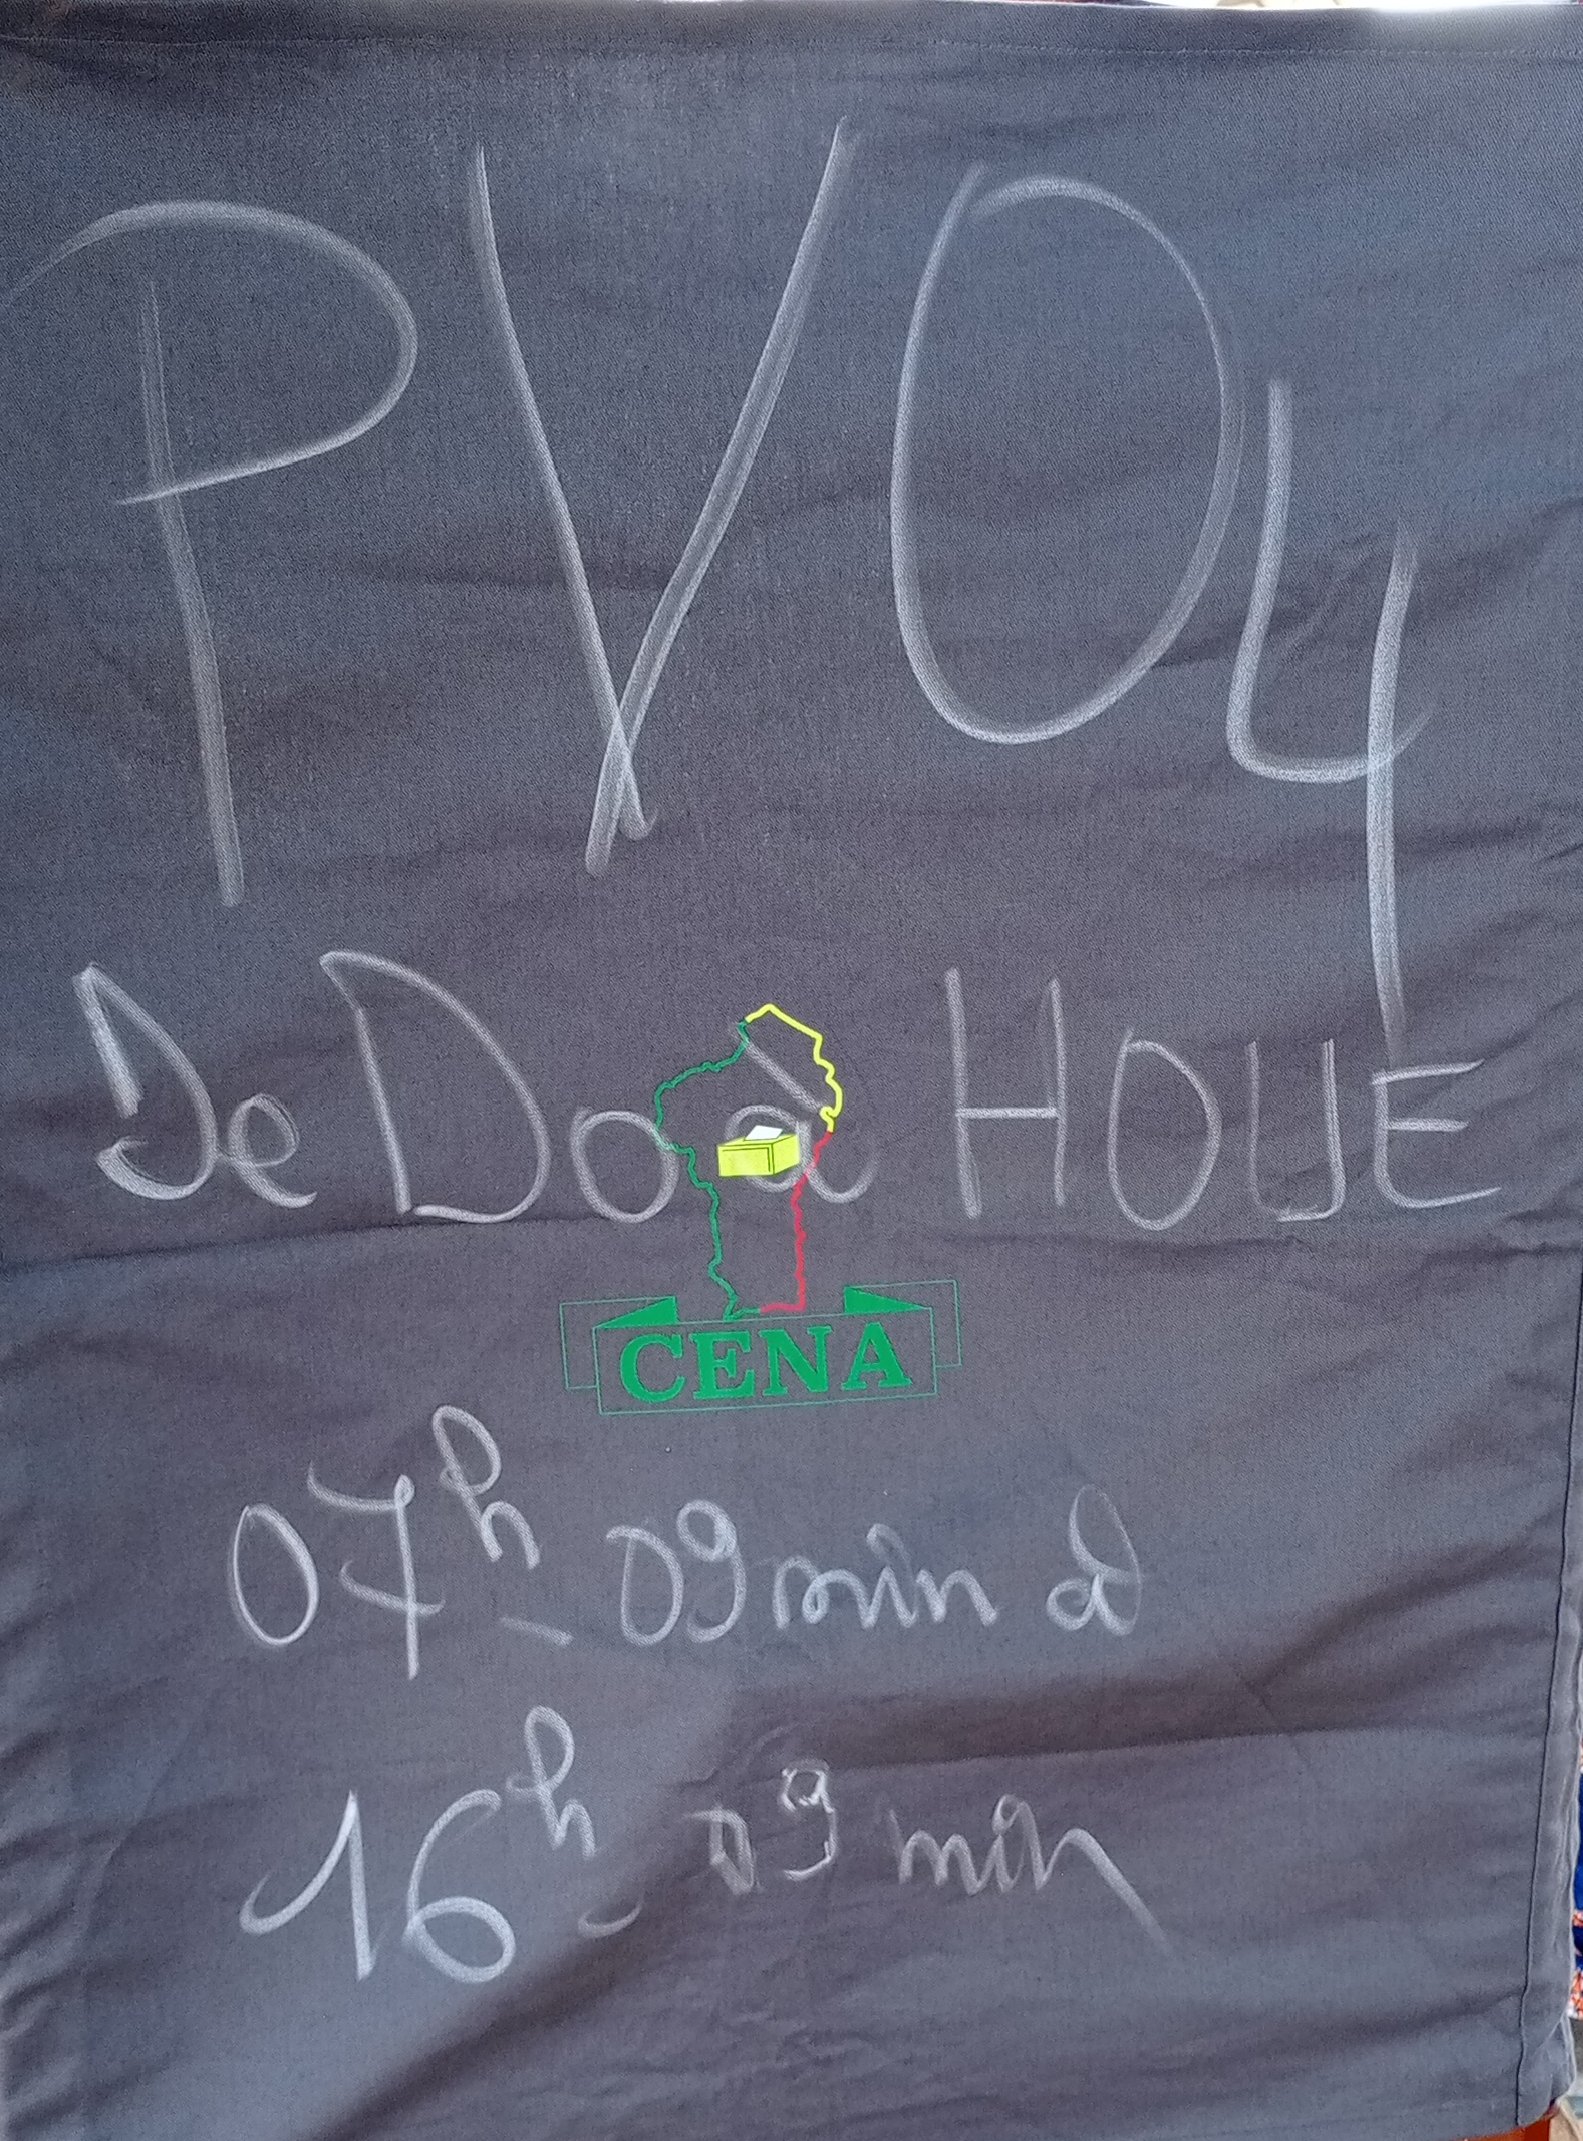 PV04
De Doà HOUE
CENA
07h - 09min à
16h - 09 min